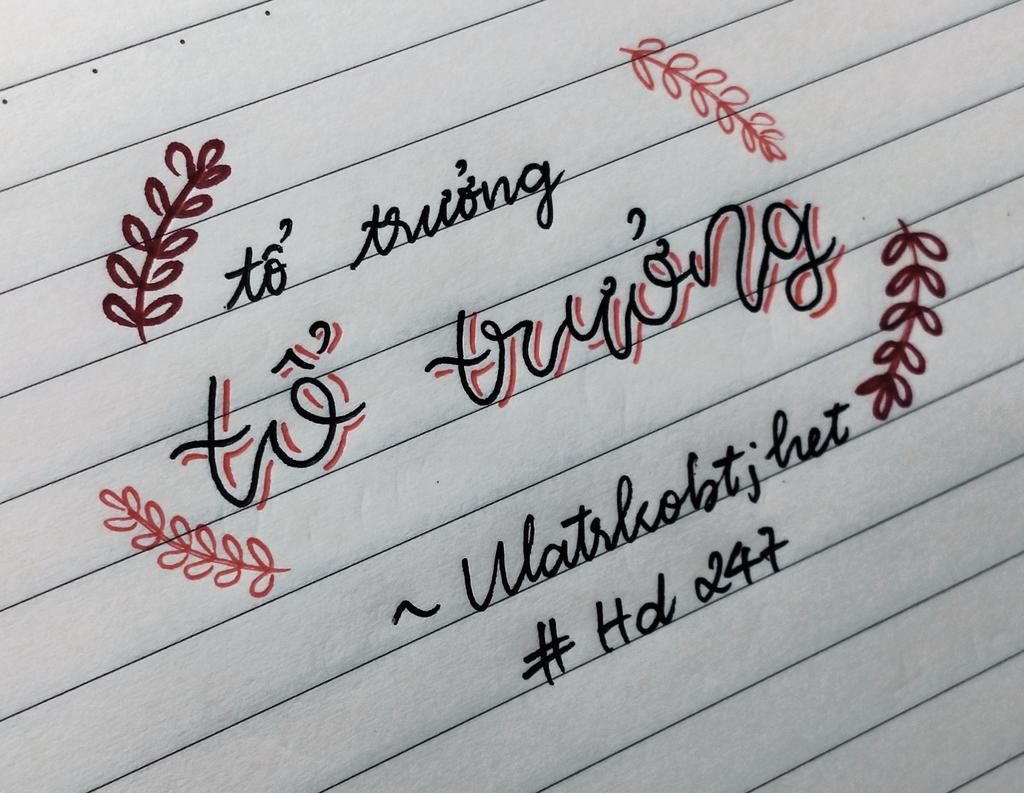 tổ trưởng
tổ trưởng
# Hd 247